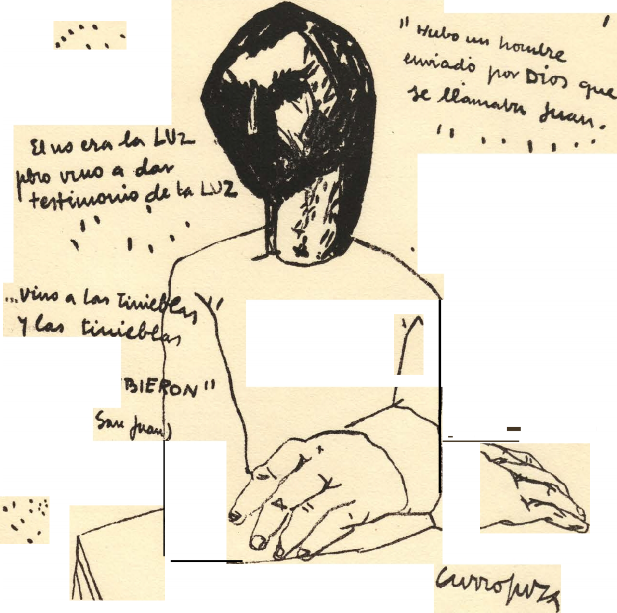 "Hubo un hombre
enviado por Dios que
se llamaba Juan.
El no era la LUZ
pero vino a dar
testimonio de la LUZ
...vino a las tinieblas
y las tinieblas
BIERON"
(San Juan)